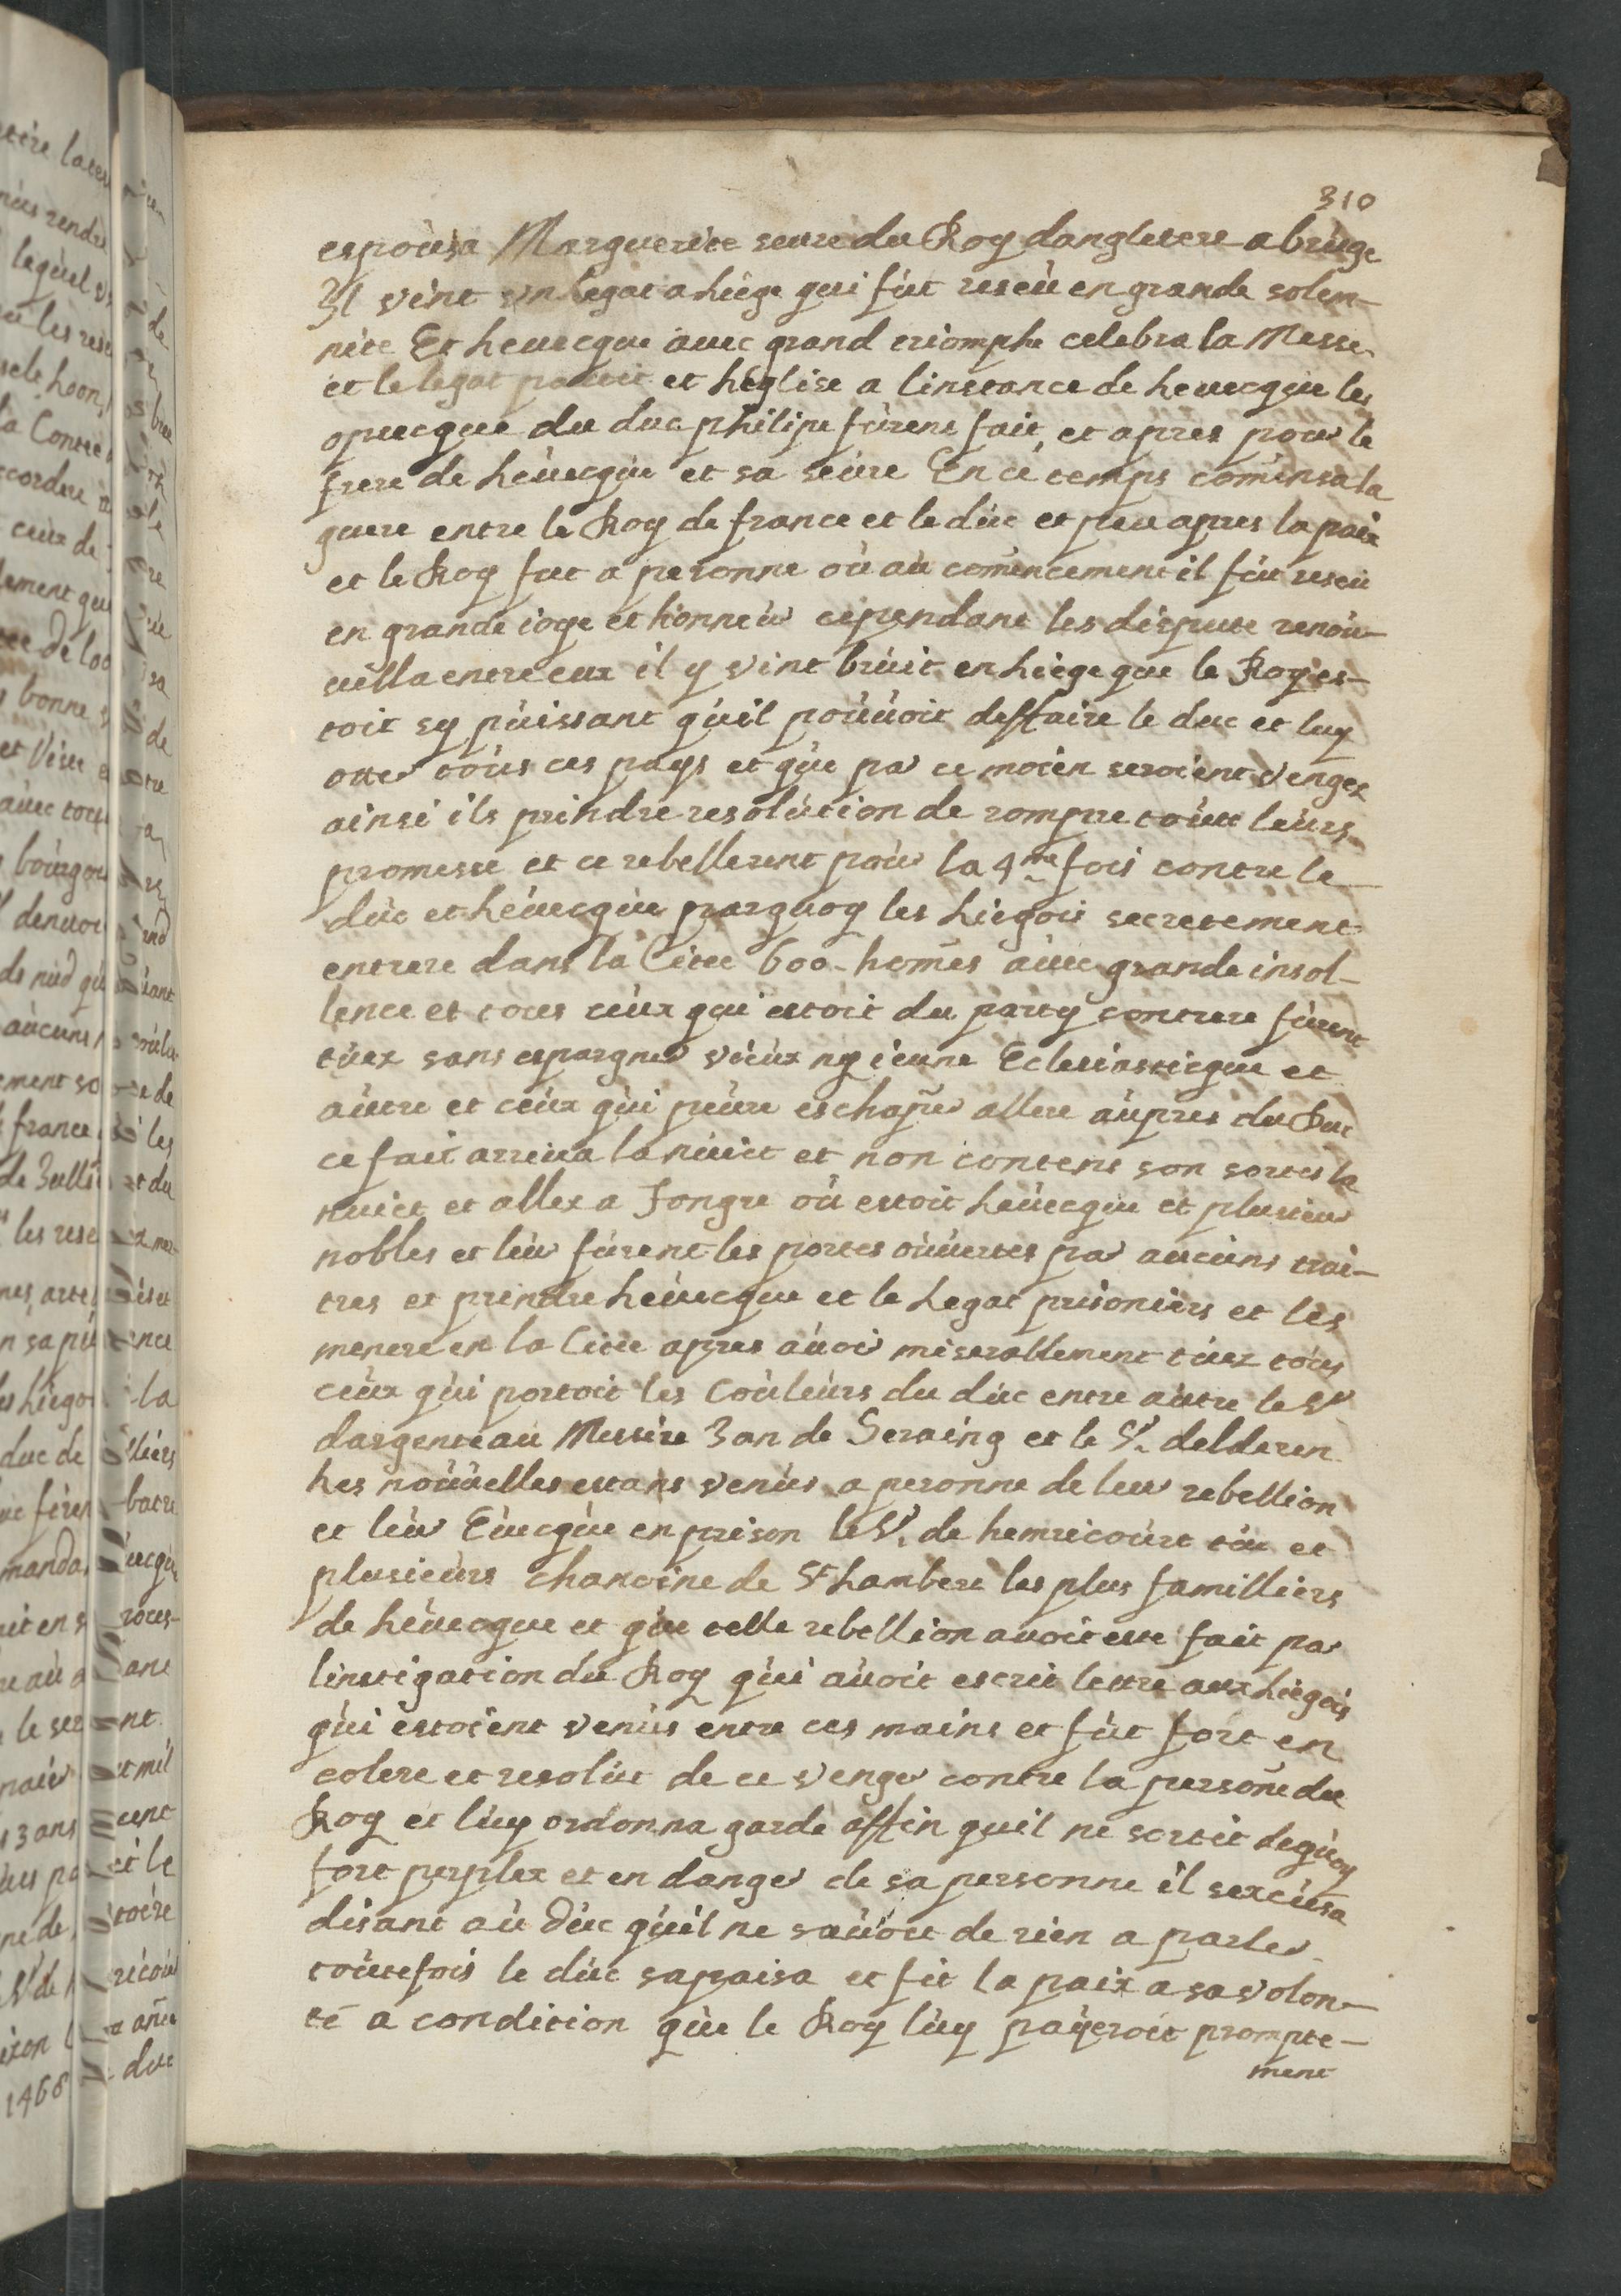 310
espousa Marguerite seure du Roy dangletere a bruge
Il vint un legat a Liége qui fut reseu en grande solem-
nite Et Leuecque auec grand triomphe celebra la Messe
et le legat partit et Léglise a linstance de Leuecque les
opsecque du duc philipe furent fait et apres pour le
frere de Leuecque et sa seure En ce temps comensa la
guere entre le Roy de france et le duc et peu apres la paix
et le Roy fut a peronne où au comencement il fut reseu
en grande ioye et honneur cependant les dispute renou-
uella entre eux il y vint bruit en Liege que le Roy es-
toit sy puissant quil pouuoit deffaire le duc et luy
otter tous ces pays et que par ce moien seroient venger
ainsi ils prindre resolution de rompre toute leurs
promesse et ce rebellerent pour la 4me fois contre le
duc et Leuecque parquoy les Liegois secretement
entrere dans la Citee 600 homes auec grande insol-
lence et tous ceux qui estoit du party contrere furent
tuez sans espargner vieux ny ieune Eclesiasticque et
autre et ceux qui peure eschaper allere aupres du Duc
ce fait arriua la nuict et non contens son sortis la
nuict et allez a Tongre où estoit Leuecque et plusieur
nobles et leur furent les portes ouuertes par aucuns trai-
tres et prindre Leuecque et le Legat prisoniers et les
menere en la Citee apres auoir miserallement tuez tous
ceux qui portoit les Couleurs du duc entre autre le Sr
dargenteau Messire Jan de Seraing et le Sr. delderen
Les nouuelles estans venues a peronne de leur rebellion
et leur Euecque en prison le Sr. de hemricourt tue et
plusieurs chanoine de St Lambert les plus familliers
de Leuecque et que telle rebellion auoit este fait par
linstigation du Roy qui auoit escrit lettre aux Liegois
qui estoient venus entre ces mains et fut fort en
colere et resolut de ce venger contre la persone du
Roy et luy ordonna garde affin quil ne sortit dequoy
fort perplex et en danger de sa personne il sexcusa
disant au Duc quil ne sauoit de rien a parler
toutefois le duc sapaisa et fit la paix a sa volon-
té a condition que le Roy luy payeroit prompte-
ment